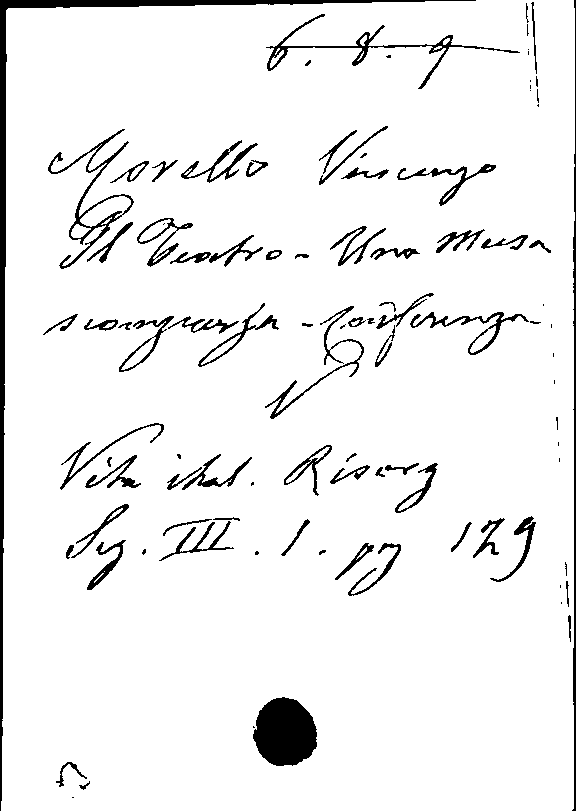 6. 8. 9
Morello Vincenzo
Il Teatro - Una Musa
scomparsa - Conferenza
V
Vita ital. Risorg
Seg. III. 1. pg 129